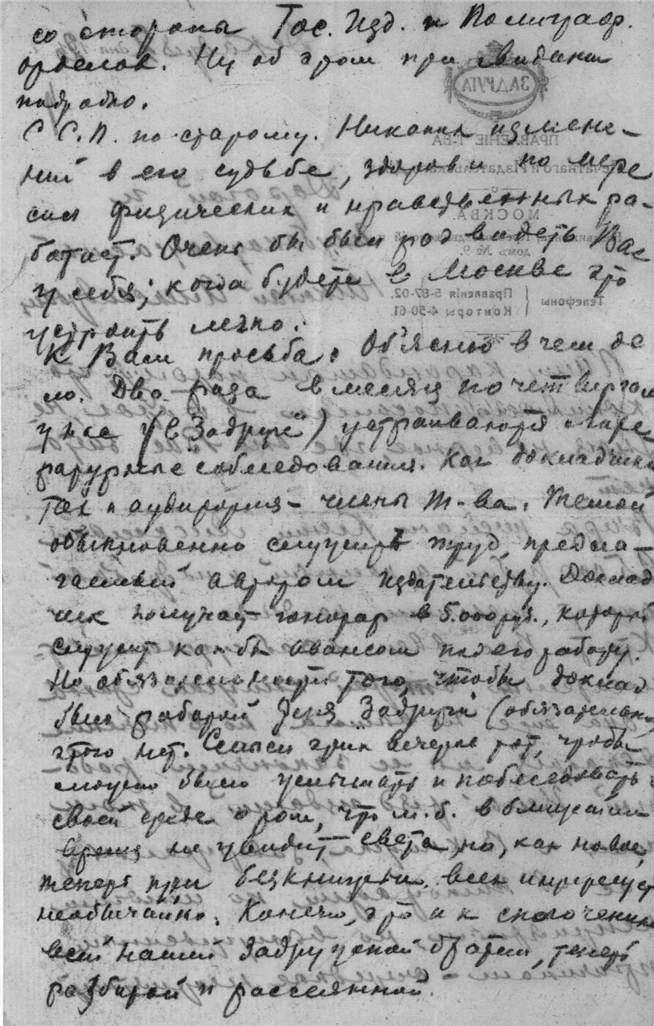 со стороны Гос. Изд. и Полиграф.
отделов. Ну об этом при свидании
подробно.
С С.П. по-старому. Никаких измене-
ний в его судьбе, здоров и по мере
сил физических и нравственных ра-
ботает. Очень бы был рад видеть Вас
у себя; когда будете в Москве это
устроить легко.
К Вам просьба. Объясню в чем де
ло. Два раза в месяц по четвергам
у нас (в "Задруге") устраиваются лите-
ратурные собеседования. Как докладчики
так и аудитория - члены т-ва. Темой
обыкновенно служит труд, предла-
гаемый автором издательству. Доклад
чик получает гонорар в 5.000 руб., который
служит как бы авансом под его работу.
Но обязательности того, чтобы доклад
был работой для "Задруги" (обязательно)
этого нет. Смысл этих вечеров тот, чтобы
можно было услышать и побеседовать в
своей среде о том, что м.б. в ближайшее
время не увидит света, но, как новое,
теперь при безкнижьи, всех интересует
необычайно. Конечно, это и к сплочению
всей нашей Задружской братии, теперь
разбитой и рассеянной.
ЗАДРУГА
ПРАВЛЕНІЕ Т-ВА
МОСКВА.
Телефоны
Правленія 5-87-02.
Конторы 4-50-61.